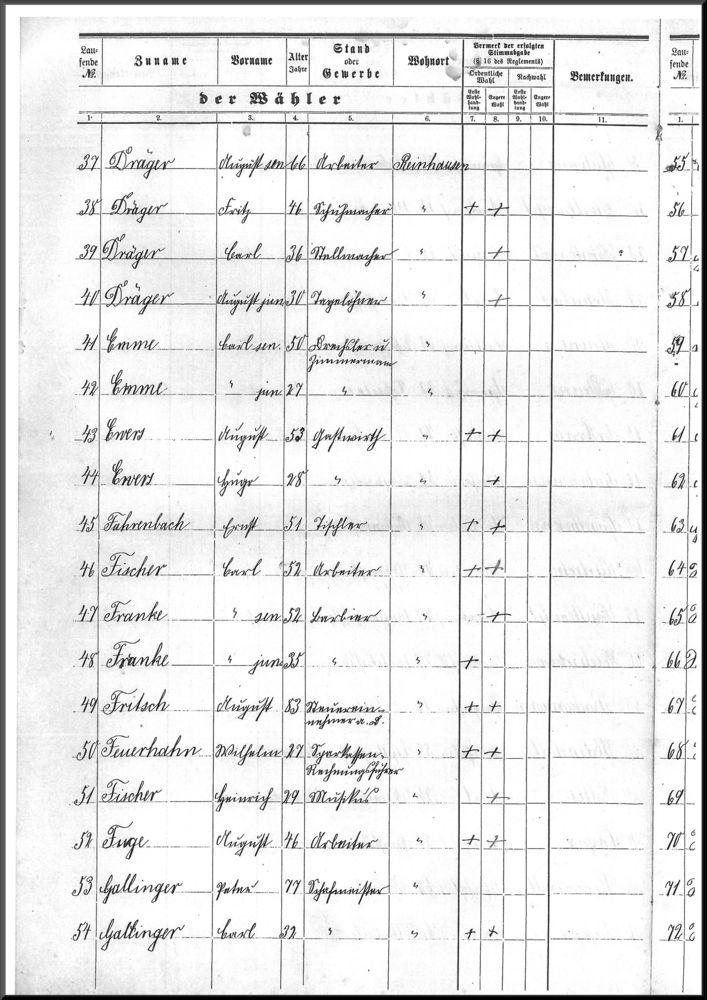 Lau-
fende
№
Zuname
Vorname
Alter
Jahre
Stand
oder
Gewerbe
Wohnort
Vermerk der erfolgten
Stimmabgabe
(§ 16 des Reglements)
Ordentliche
Wahl
Nachwahl
Erste
Wahl-
hand-
lung
Engere
Wahl
Erste
Wahl-
hand-
lung
Engere
Wahl
Bemerkungen.
der Wähler
1. 2. 3. 4. 5. 6. 7. 8. 9. 10. 11.
37 Dräger August sen 66 Arbeiter Reinhausen
38 Dräger Fritz 46 Schuhmacher " + +
39 Dräger Carl 36 Stellmacher " +
40 Dräger August jun 30 Tagelöhner " +
41 Emme Carl sen. 50 Drechsler u "
Zimmermann
42 Emme " jun 27 " "
43 Ewers August 53 Gastwirth " + +
44 Ewers Hugo 28 " " +
45 Fahrenbach Ernst 51 Tischler " + +
46 Fischer Carl 52 Arbeiter " + +
47 Franke " sen 52 Barbier " +
48 Franke " jun 35 " " +
49 Fritsch August 83 Steuerein- " + +
nehmer a. D.
50 Feuerhahn Wilhelm 27 Sparkassen- " + +
Rechnungsführer
51 Fischer Heinrich 29 Musikus " +
52 Fuge August 46 Arbeiter " + +
53 Gallinger Peter 77 Schafmeister "
54 Gallinger Carl 32 " " + +
Lau-
fende
№
1.
55
56
57
58
59
60
61
62
63
64
65
66
67
68
69
70
71
72